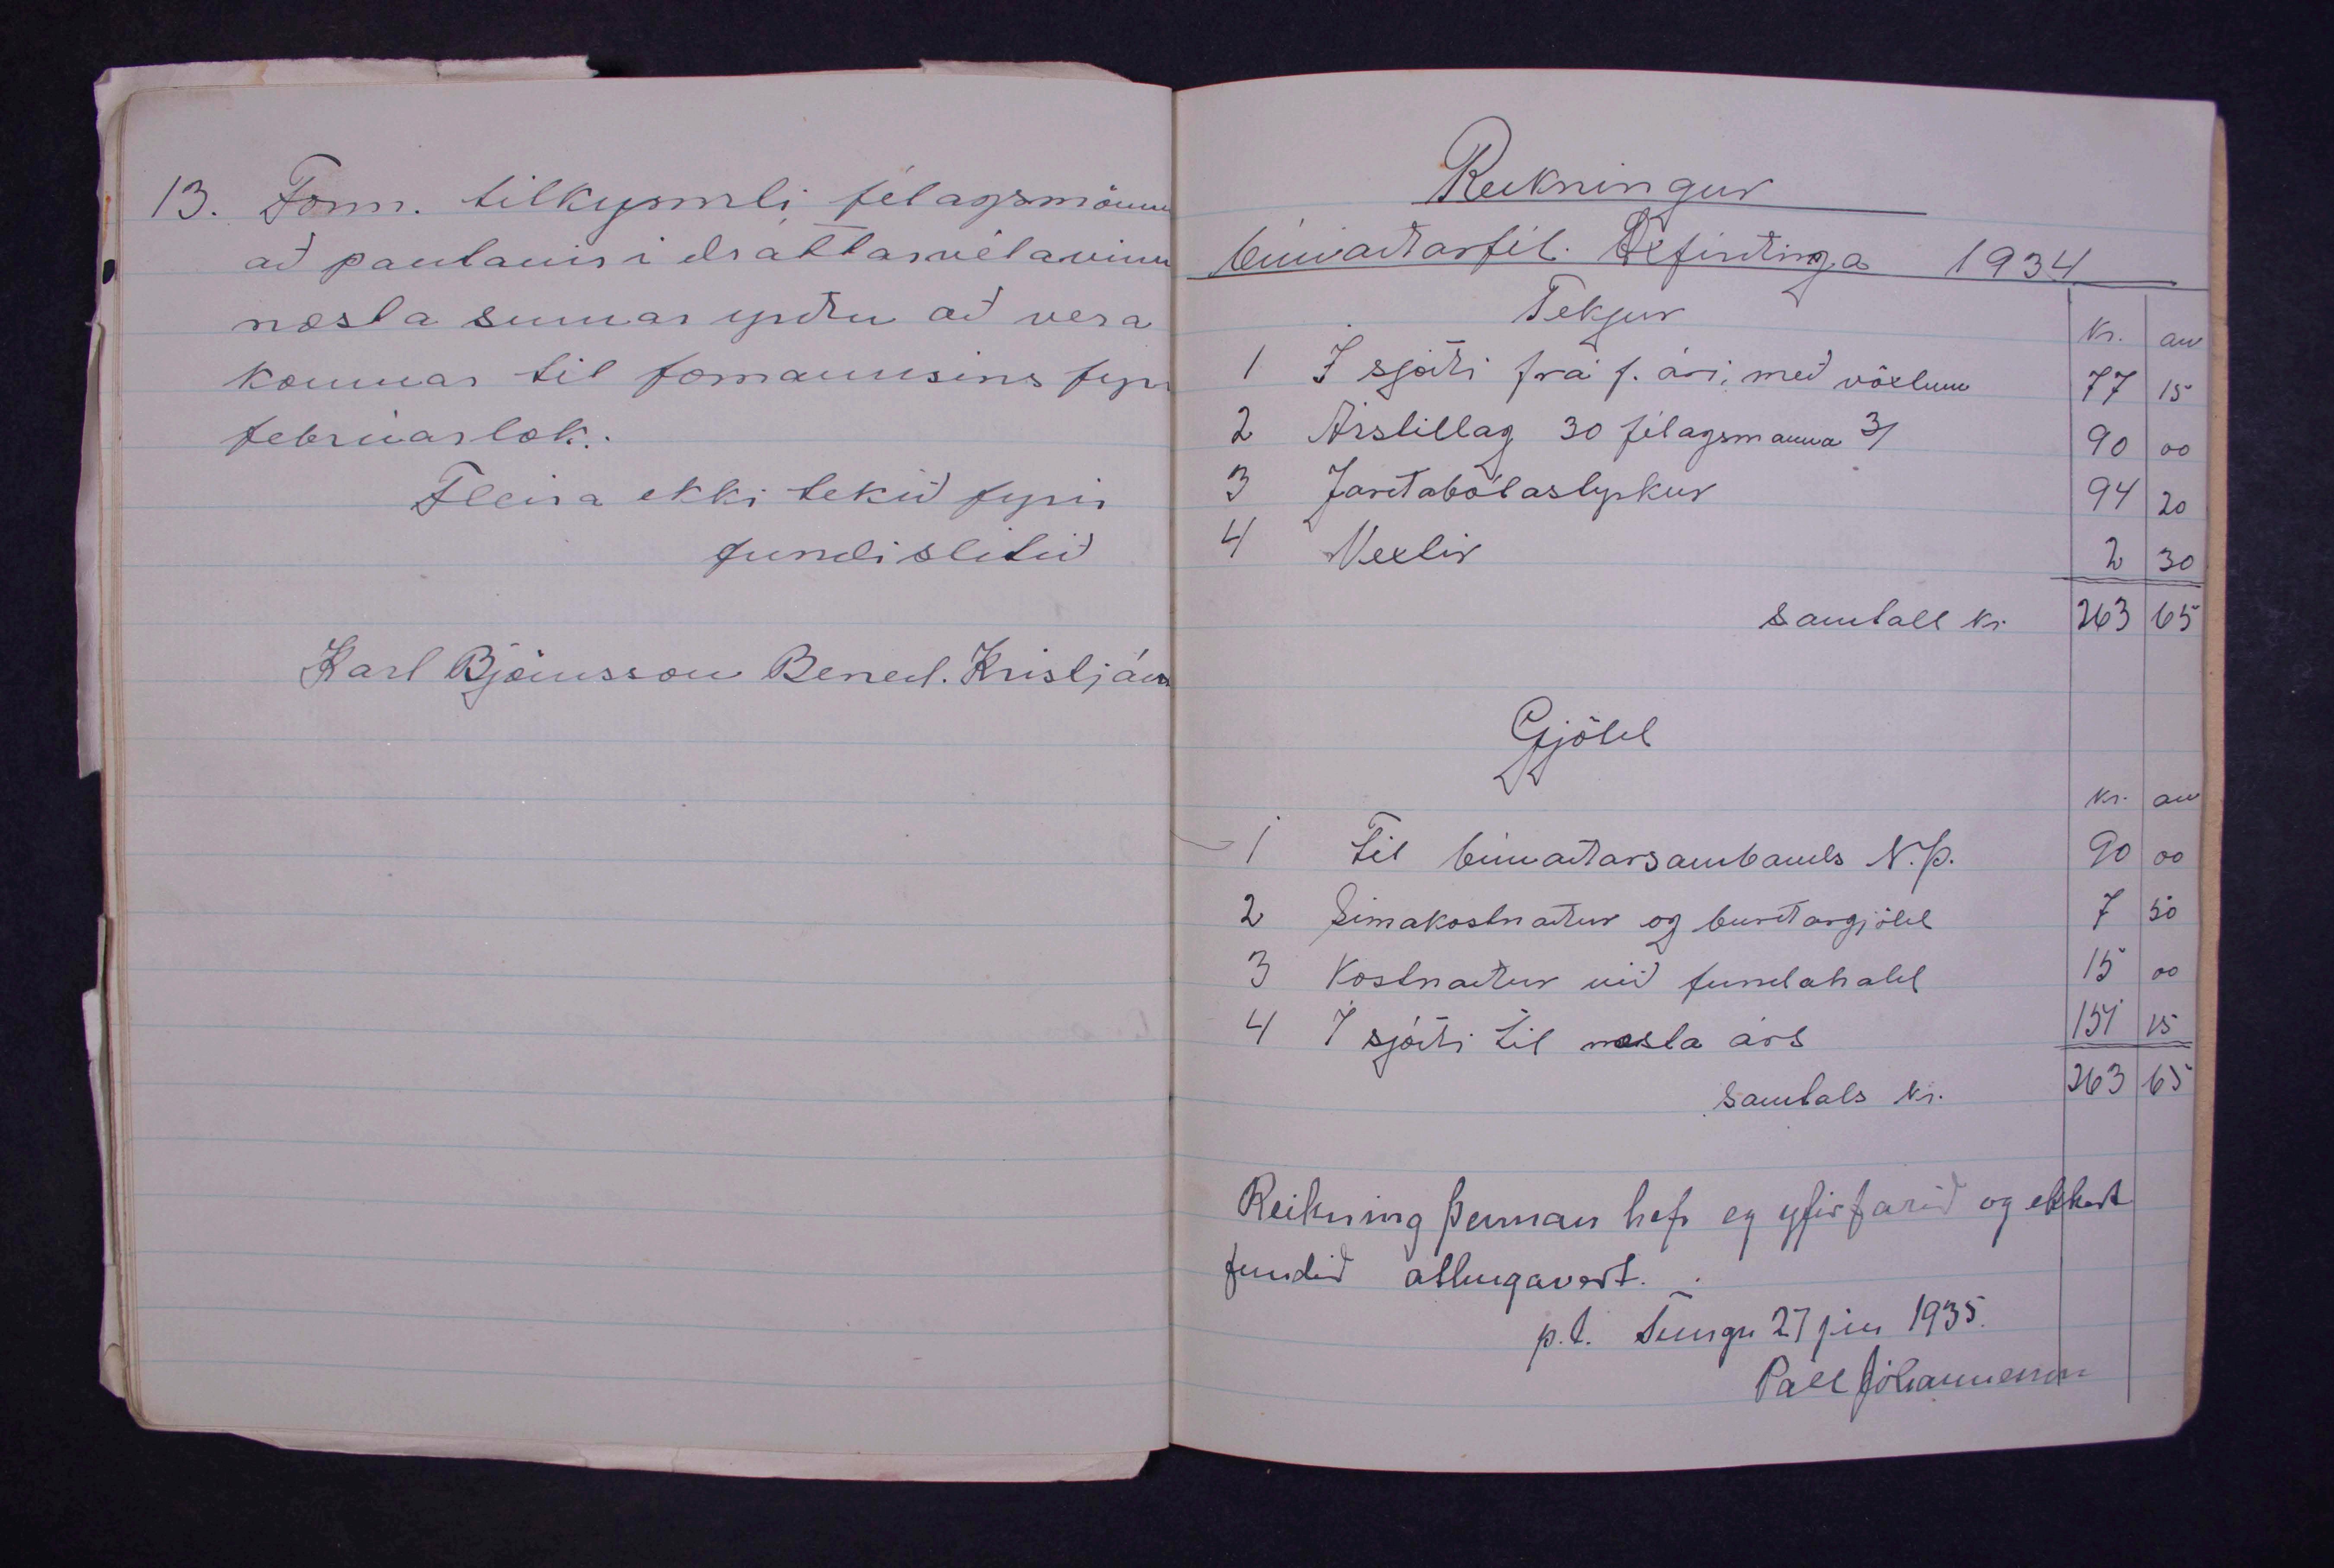 13. Form. tilkynnti félagsmönnum
að pantanir í dráttarvélavinnu
næsta sumar yrðu að vera
komnar til formannsins fyrir
febrúarlok.
Fleira ekki tekið fyrir
fundi slitið
Karl Björnsson Bened. Kristjáns
Reikningur
búnaðarfél. Öxfirðinga 1934
Tekjur
kr. au
1 Í sjóði frá f. ári, með vöxtum 77 15
2 Árstillag 30 félagsmanna 3/ 90 00
3 Jarðabótastyrkur 94 20
4 Vextir 2 30
samtals kr. 263 65
Gjöld
kr. au
1 Til búnaðarsambands N.Þ. 90 00
2 Símakostnaður og burðargjöld 7 50
3 Kostnaður við fundahald 15 00
4 Í sjóði til næsta árs 151 15
samtals kr. 263 65
Reikning þennan hefi eg yfirfarið og ekkert
fundið athugavert.
p.t. Tungu 27 jún 1935.
Páll Jóhannesson